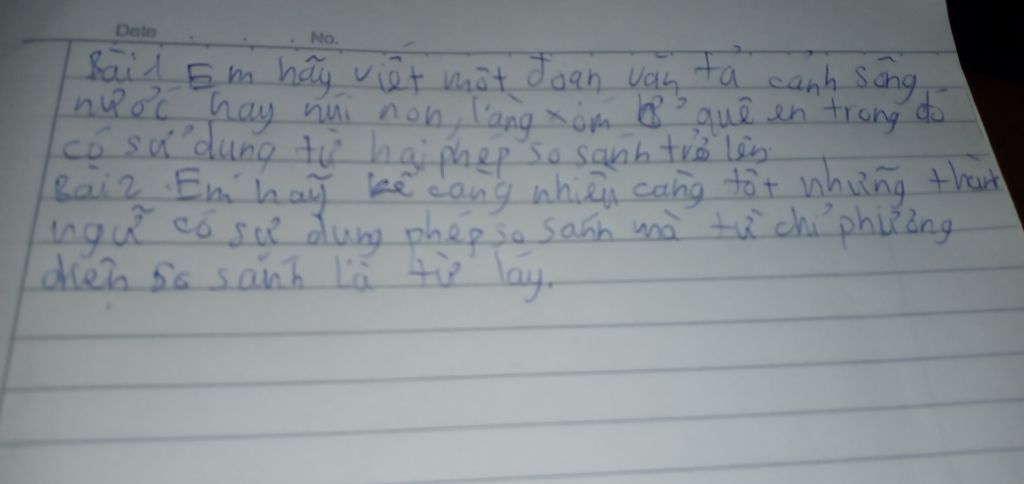 Date . . . No.
Bài 1 Em hãy viết một đoạn văn tả cảnh sông
nước hay núi non, làng xóm ở quê em trong đó
có sử dụng từ hai phép so sánh trở lên
Bài 2. Em hãy kể càng nhiều càng tốt những thành
ngữ có sử dụng phép so sánh mà từ chỉ phương
diện so sánh là từ láy.